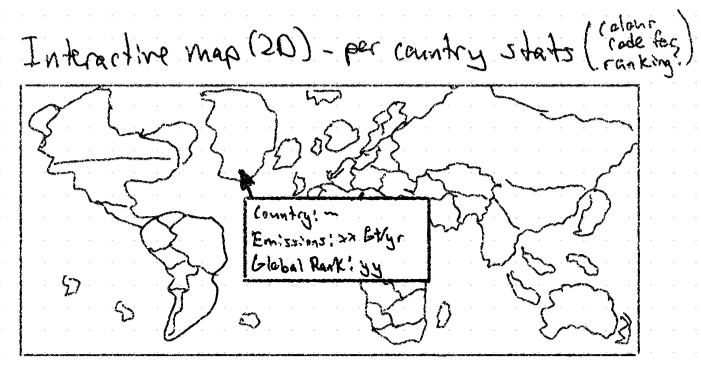 Interactive map (2D) - per country stats
(colour
code for
ranking)
Country: ~
Emissions: xx Gt/yr
Global Rank: yy